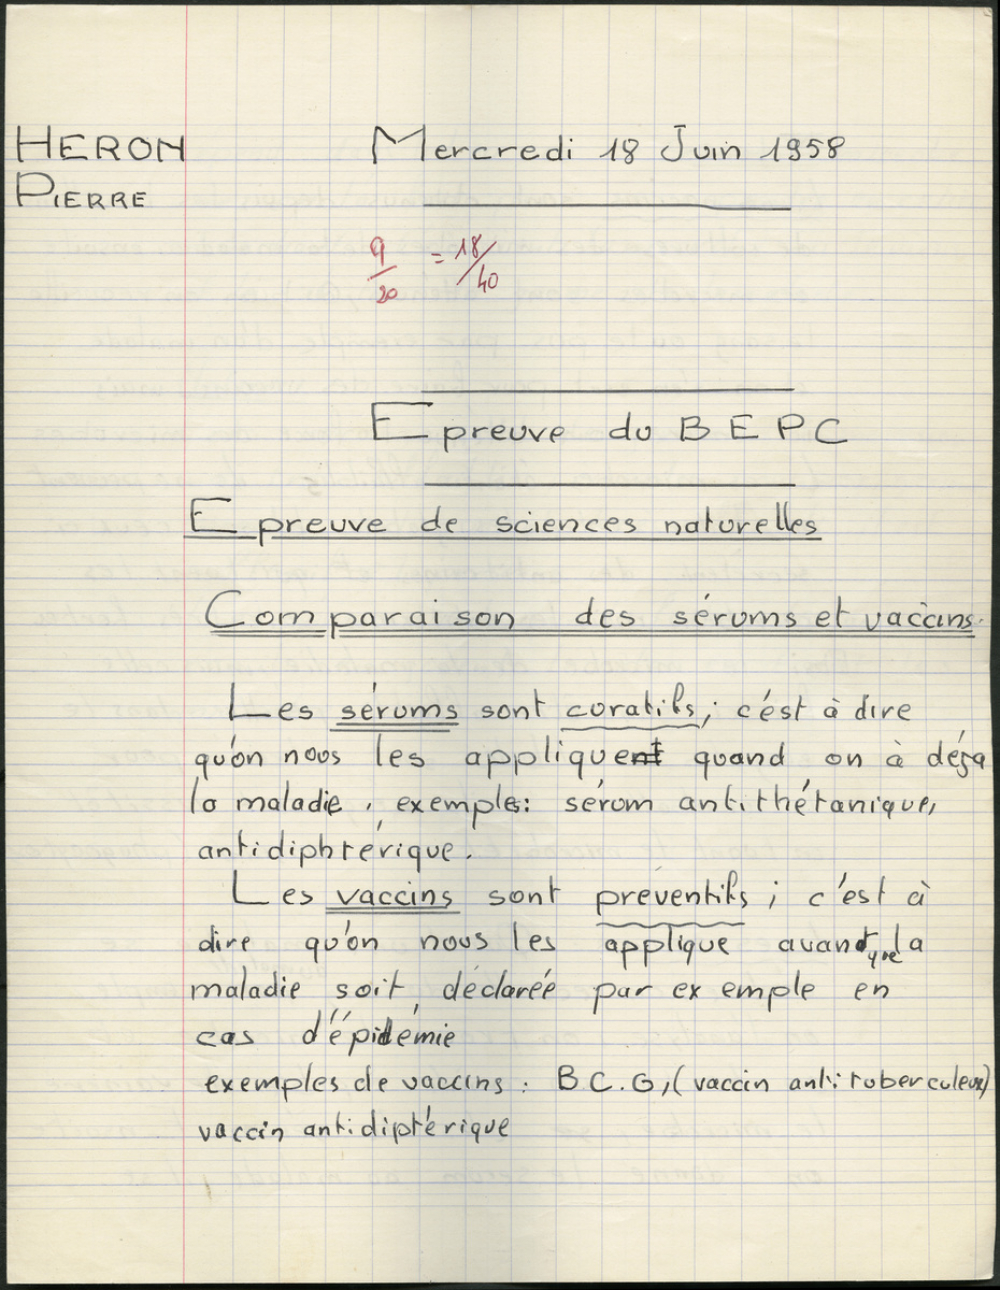 HERON
PIERRE
Mercredi 18 Juin 1958
9/20 = 18/40
Epreuve du BEPC
Epreuve de sciences naturelles
Comparaison des sérums et vaccins.
Les sérums sont curatifs; c'est à dire
qu'on nous les applique quand on à déja
la maladie, exemple: sérum antithétanique,
antidiphtérique.
Les vaccins sont préventifs; c'est à
dire qu'on nous les applique avant que la
maladie soit déclarée par exemple en
cas d'épidémie
exemples de vaccins: B.C.G, (vaccin antituberculeux)
vaccin antidiptérique